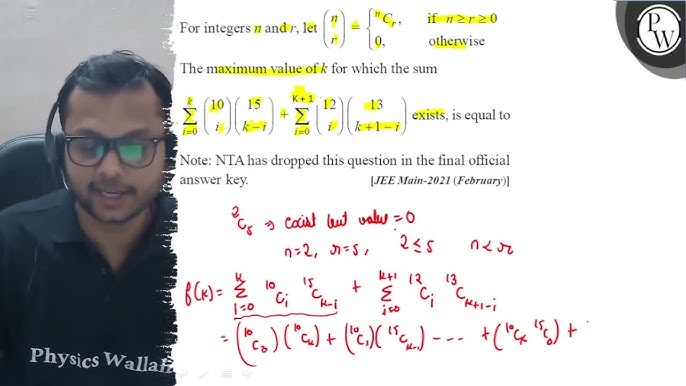 For integers n and r, let (n r) = { ⁿCᵣ, if n ≥ r ≥ 0
0, otherwise
The maximum value of k for which the sum
∑_{i=0}^{k} (10 i)(15 k−i) + ∑_{i=0}^{K+1} (12 i)(13 k+1−i) exists, is equal to
Note: NTA has dropped this question in the final official
answer key. [JEE Main-2021 (February)]
²C₅ ⇒ exist but value = 0
n=2, r=5, 2 ≤ 5 n < r
f(k) = ∑_{i=0}^{k} ¹⁰Cᵢ ¹⁵C_{k-i} + ∑_{i=0}^{k+1} ¹²Cᵢ ¹³C_{k+1-i}
= (¹⁰C₀)(¹⁰C_k) + (¹⁰C₁)(¹⁵C_{k-1}) ---- + (¹⁰C_k ¹⁵C₀) +
P
W
Physics Wallah